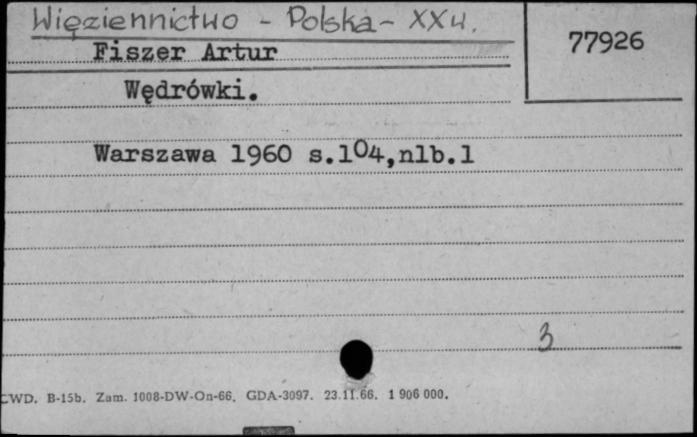 Więziennictwo - Polska - XX w.
77926
Fiszer Artur
Wędrówki.
Warszawa 1960 s.104,nlb.1
3
CWD. B-15b. Zam. 1008-DW-On-66. GDA-3097. 23.11.66. 1 906 000.